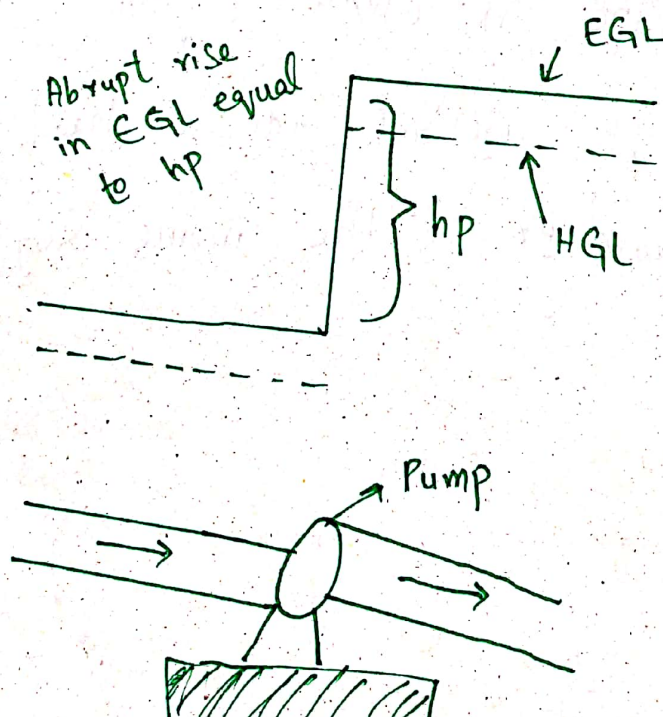 Abrupt rise
in EGL equal
to hp
EGL
hp
HGL
Pump